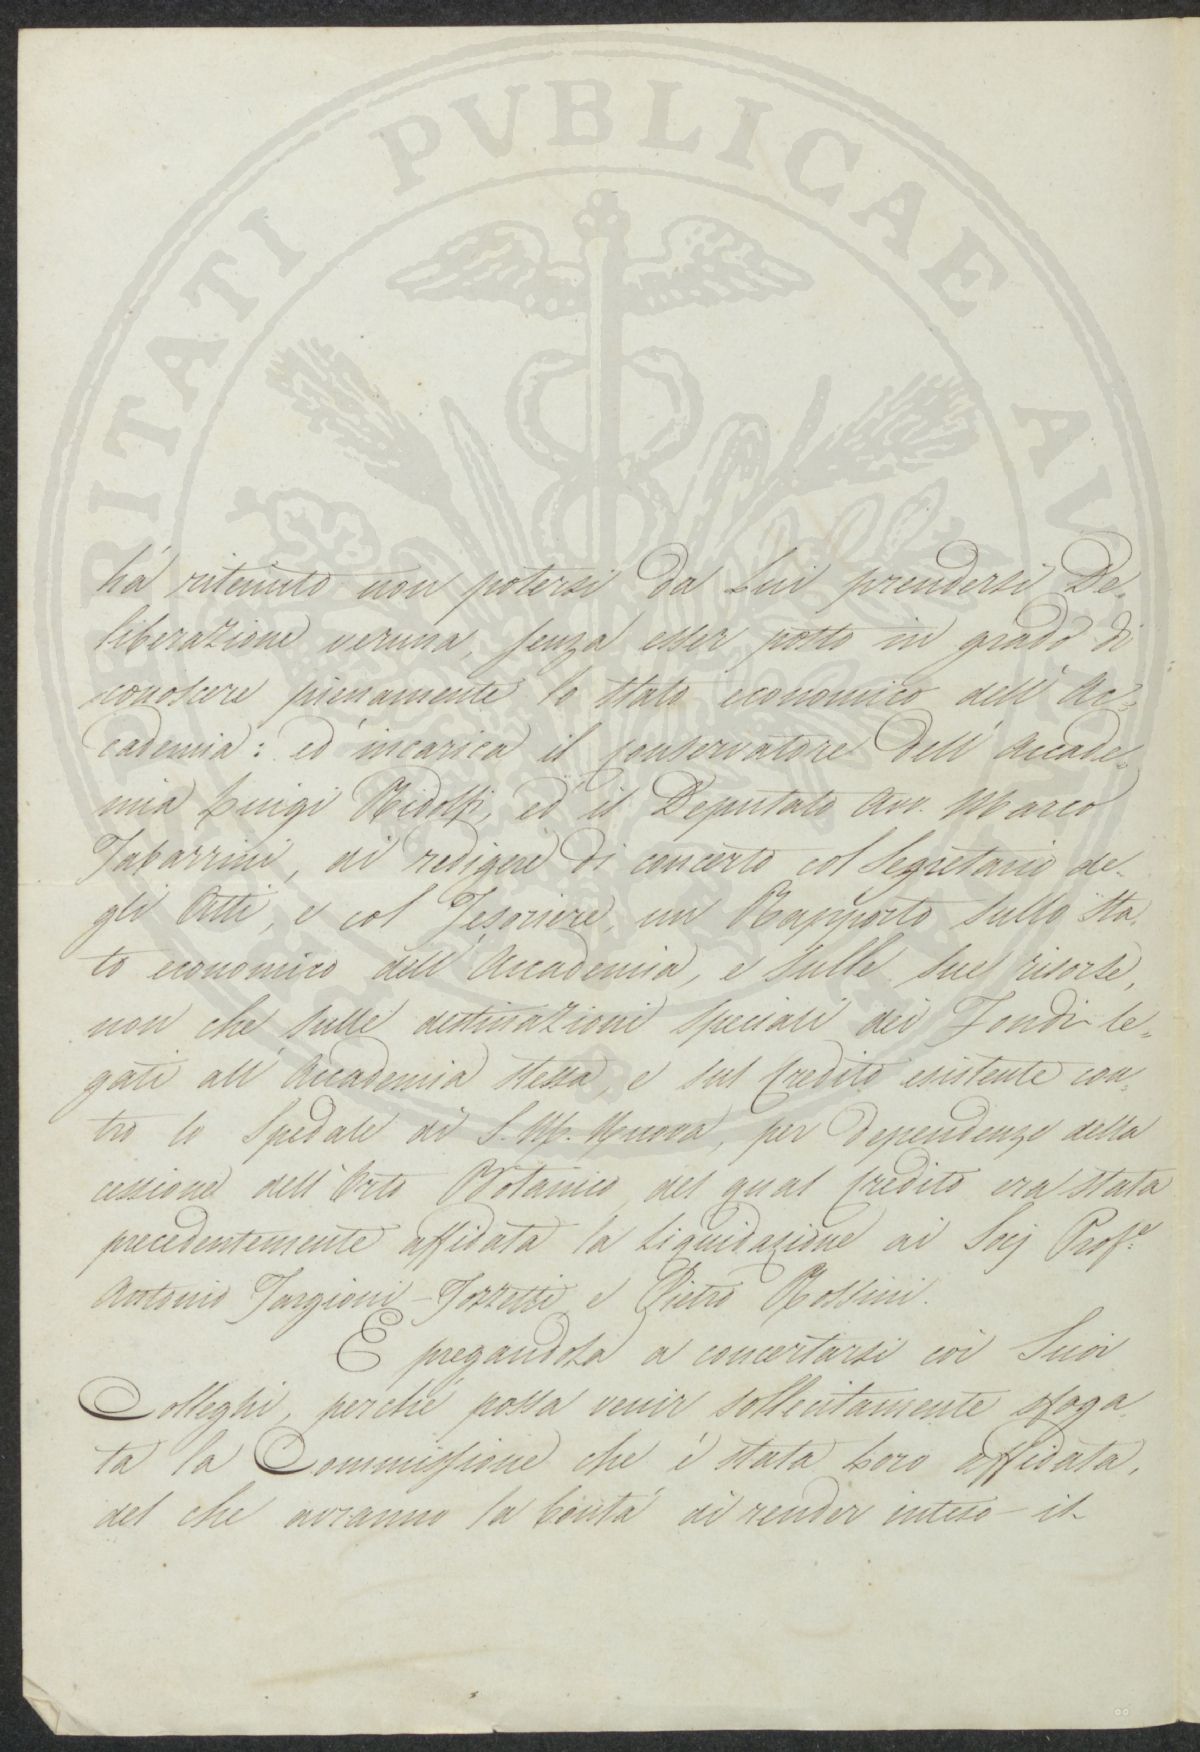 PROSPERITATI PUBLICAE AU
há ritenuto non potersi da Lui prendersi De-
liberazione veruna, senza esser posto in grado di
conoscere pienamente lo stato economico dell' Ac-
cademia: ed incarica il Conservatore dell' Accade-
mia Luigi Ridolfi, ed il Deputato Avv. Marco
Tabarrini, di redigere di concerto col Segretario de-
gli Atti, e col Tesoriere, un Rapporto sullo sta-
to economico dell' Accademia, e sulle sue risorse,
non che sulle destinazioni speciali dei Fondi le-
gati all' Accademia stessa, e sul Credito esistente con-
tro lo Spedale di S. M. Nuova, per dependenze della
cessione dell' Orto Botanico, del qual Credito era stata
precedentemente affidata la Liquidazione ai Socj Prof.ri
Antonio Targioni-Tozzetti e Pietro Rossini.
E pregandola a concertarsi coi Suoi
Colleghi, perché possa venir sollecitamente sfoga-
ta la Commissione che é stata Loro affidata,
del che avranno la bontá di render inteso il